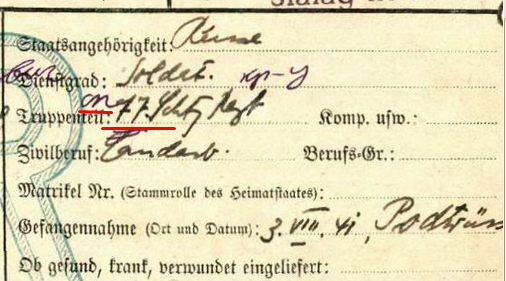 Stalag
Staatsangehörigkeit: Russe
Dienstgrad: Soldat. кр-ц
Truppenteil: 77. Schtz Regt Komp. usw.:
Zivilberuf: Landarb. Berufs-Gr.:
Matrikel Nr. (Stammrolle des Heimatstaates):
Gefangennahme (Ort und Datum): 3. VIII. 41,
Ob gesund, krank, verwundet eingeliefert: